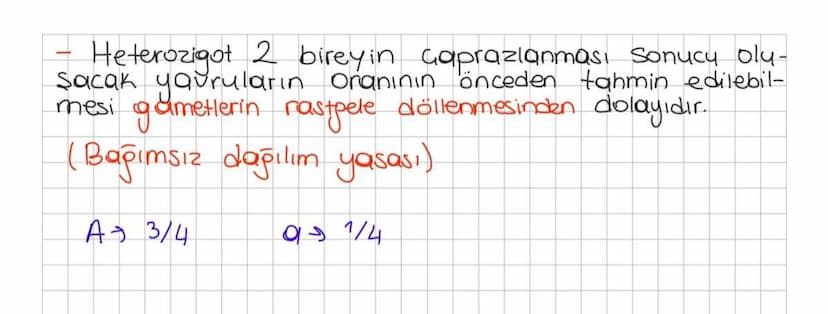 - Heterozigot 2 bireyin çaprazlanması sonucu olu-
şacak yavruların oranının önceden tahmin edilebil-
mesi gametlerin rastgele döllenmesinden dolayıdır.
(Bağımsız dağılım yasası)
A→ 3/4 a→ 1/4